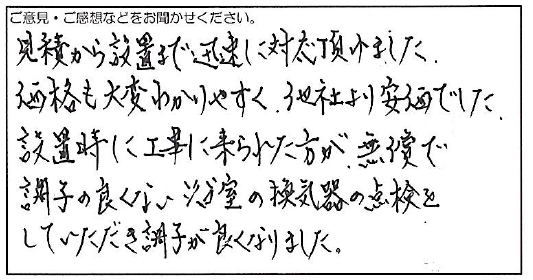 ご意見・ご感想などをお聞かせください。
見積から設置まで迅速に対応頂けました。
価格も大変わかりやすく、他社より安価でした。
設置時に工事に来られた方が、無償で
調子の良くない浴室の換気器の点検を
していただき調子が良くなりました。